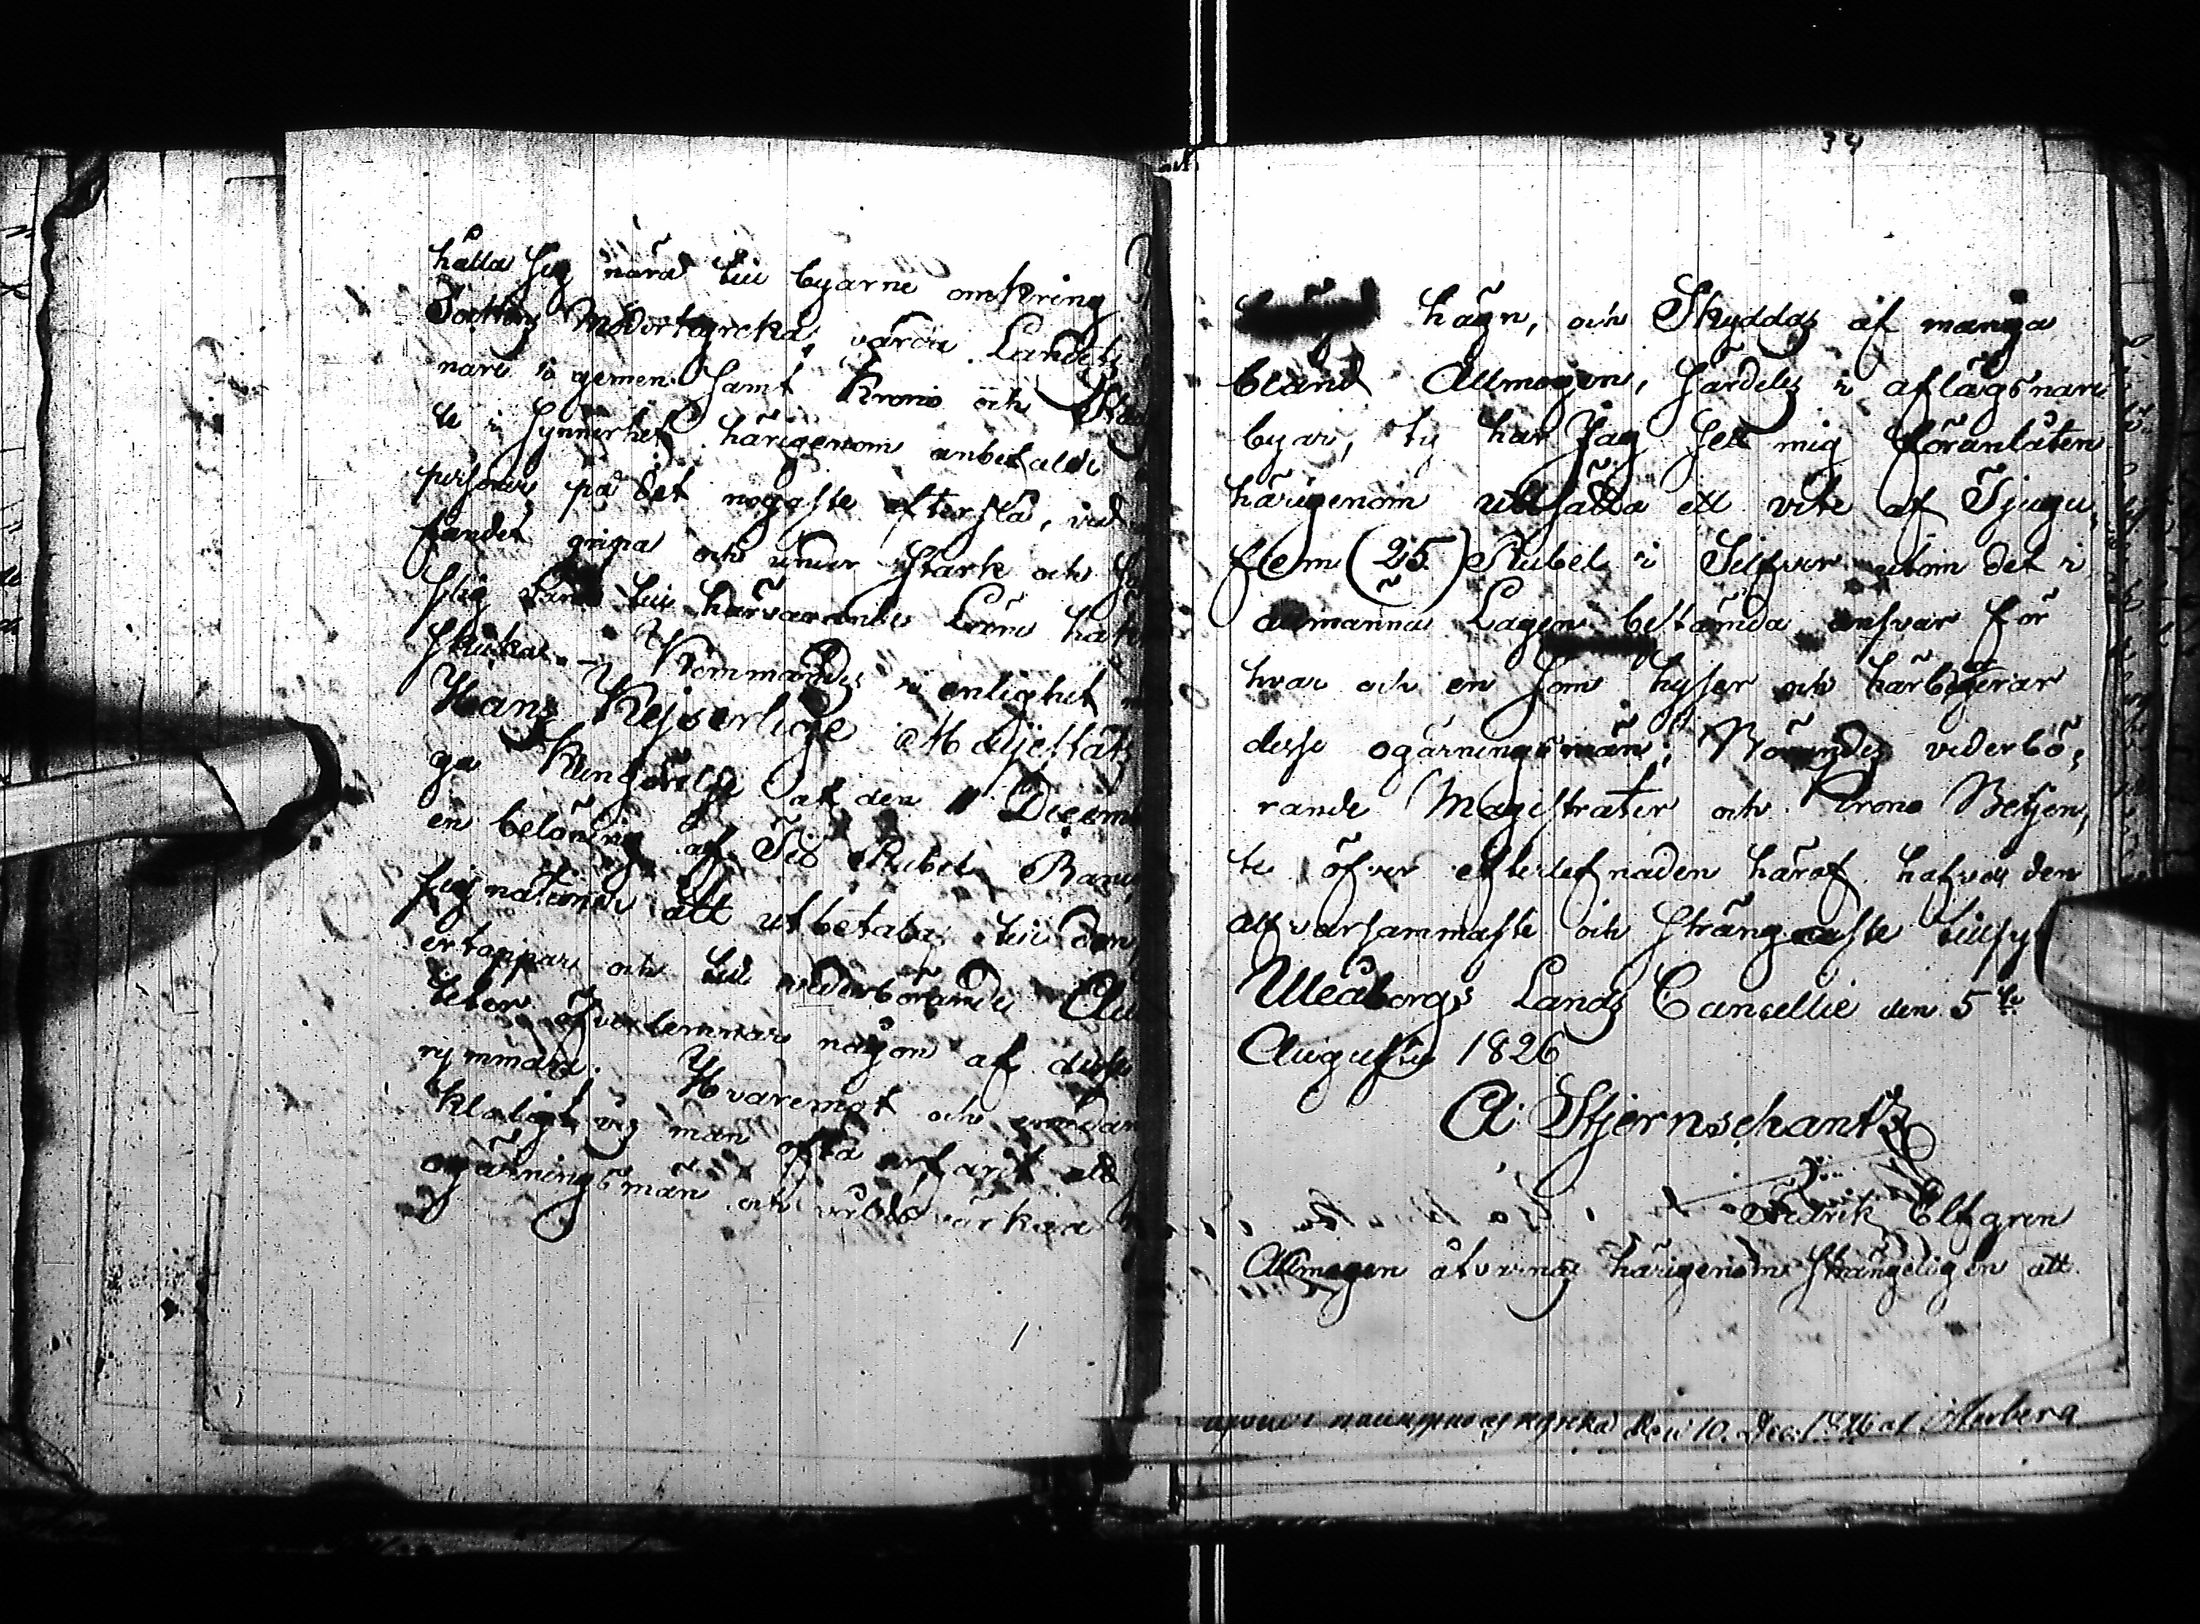 hålla sig nära till byarne omkring
Moderkyrka, varda Landets
nare i gemen samt Krono och
te i synnerhet härigenom anbefalde
personer på det nogaste efterslå, vid
fandet gripa och under stark och
till härvarande Läns häk
skickas. Kommandes i enlighet
Hans Kejserlige Majestäts
ga Kungörelse af den 11 Decem
en belöning af Tio Rubel Banco
signationer att utbetalas till den,
ertappar och till vederbörande
teter öfverlemnar någon af desse
rymmare. Hvaremot och emedan
klaligt vis man ofta erfarit att
ogärningsmän och
34
hägn, och Skyddas af många
bland Allmogen, särdeles i aflägsnare
byar, ty har Jag sett mig föranlåten
härigenom utsätta ett vite af Tjugu,
fem (25) Rubel i Silfver utom det i
allmänna Lagen bestämda ansvar för
hvar och en som hyser och härbergerar
desse ogärningsmän; Börandes vederbö,
rande Magistrater och Krono Betjen,
te öfver efterlefnaden häraf hafva den
allvarsammaste och strängaste tillsyn
Uleåborgs Lands Cancellie den 5te
Augusti 1826
A: Stjernschantz
Fredrik Elfgren
Allmogen åtvarnas härigenom strängeligen att
kyrka den 10. Dec: af Österberg